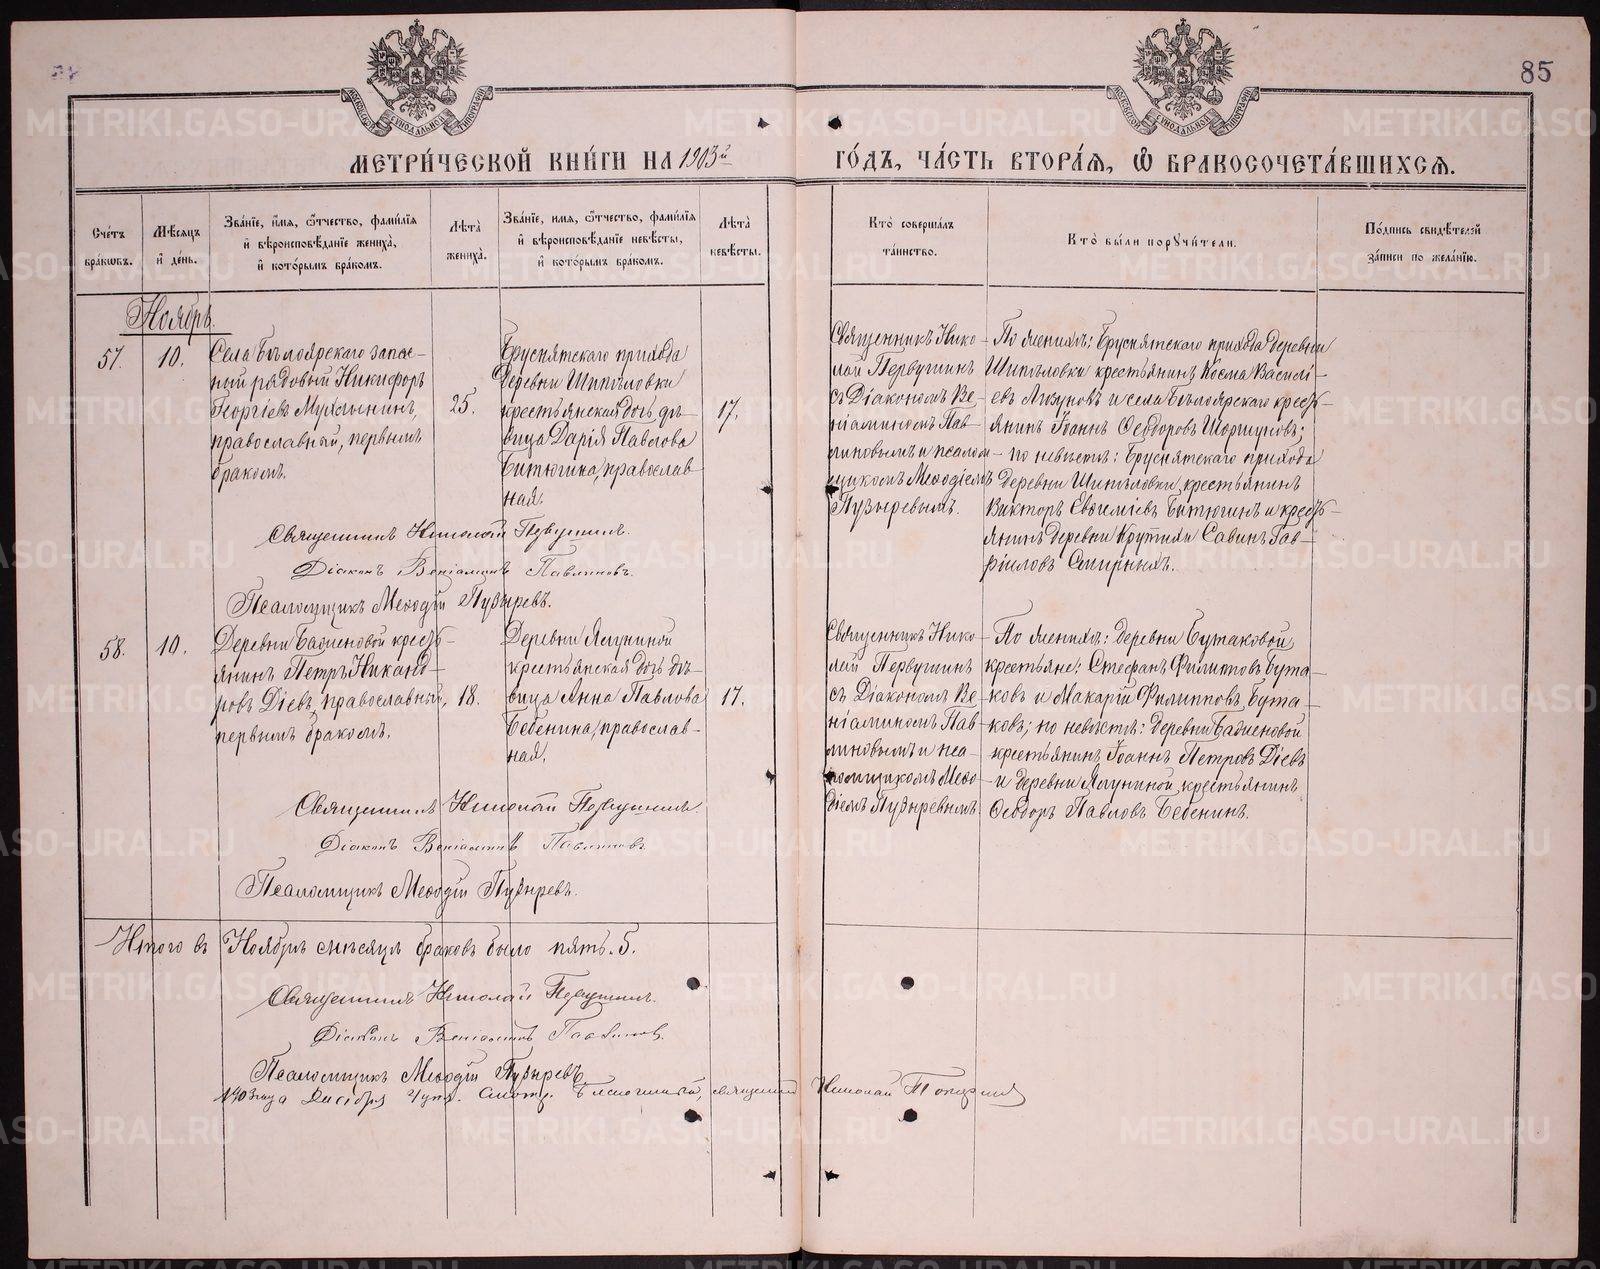 85
МЕТРИ́ЧЕСКОЙ КНИ́ГИ НА 1903й ГО́ДЪ, ЧА́СТЬ ВТОРА́Я, Ѿ БРАКОСОЧЕТА́ВШИХСЯ.
Сче́тъ бра́кωвъ.
Мѣ́сяцъ и҆ де́нь.
Зва́нїе, и҆́мя, ѻ҆́тчество, фами́лїя и҆ вѣроисповѣ́данїе жениха̀, и҆ кото́рымъ бра́комъ.
Лѣ́та жениха̀.
Зва́нїе, имя, ѻ҆́тчество, фами́лїя и҆ вѣроисповѣ́данїе невѣ́сты, и҆ кото́рымъ бракомъ.
Лѣ́та невѣ́сты.
Кто̀ соверша́лъ та́инство.
Кто̀ бы́ли порꙋчи́тели.
По́дпись свидѣ́телей за́писи по жела́нїю.
Ноябрь.
57.
10.
Села Бѣлоярскаго запас-
ный рядовый Никифоръ
Георгіевъ Мухлынинъ,
православный, первымъ
бракомъ.
25.
Бруснятскаго прихода
деревни Шипѣловки
крестьянская дочь дѣ-
вица Дарія Павлова
Битюгина, православ-
ная.
17.
Священникъ Нико-
лай Первушинъ
съ Діакономъ Ве-
ніаминомъ Пав-
линовымъ и псалом-
щикомъ Меѳодіемъ
Пузыревымъ.
По женихѣ: Бруснятскаго прихода деревни
Шипѣловки крестьянинъ Косма Василі-
евъ Лызуновъ и села Бѣлоярскаго кресть-
янинъ Іоаннъ Ѳеодоровъ Шоршуновъ;
по невѣстѣ: Бруснятскаго прихода
деревни Шипѣловки, крестьянинъ
Викторъ Евѳиміевъ Битюгинъ и кресть-
янинъ деревни Крутихи Савинъ Гав-
ріиловъ Смирныхъ.
Священникъ Николай Первушинъ.
Діаконъ Веніаминъ Павлиновъ.
Псаломщикъ Меѳодій Пузыревъ.
58.
10.
Деревни Баженовой кресть-
янинъ Петръ Никано-
ровъ Діевъ, православный,
первымъ бракомъ.
18.
Деревни Ялуниной
крестьянская дочь дѣ-
вица Анна Павлова
Бебенина, православ-
ная.
17.
Священникъ Нико-
лай Первушинъ
съ Діакономъ Ве-
ніаминомъ Пав-
линовымъ и пса-
ломщикомъ Меѳо-
діемъ Пузыревымъ.
По женихѣ: деревни Бутаковой
крестьяне: Стефанъ Филипповъ Бута-
ковъ и Макарій Филипповъ Бута-
ковъ; по невѣстѣ: деревни Баженовой
крестьянинъ Іоаннъ Петровъ Діевъ
и деревни Ялуниной крестьянинъ
Ѳеодоръ Павловъ Бебенинъ.
Священникъ Николай Первушинъ.
Діаконъ Веніаминъ Павлиновъ.
Псаломщикъ Меѳодій Пузыревъ.
Итого въ Ноябрѣ мѣсяцѣ браковъ было пять. 5.
Священникъ Николай Первушинъ.
Діаконъ Веніаминъ Павлиновъ.
Псаломщикъ Меѳодій Пузыревъ.
1903 года Декабря священникъ Николай
METRIKI.GASO-URAL.RU